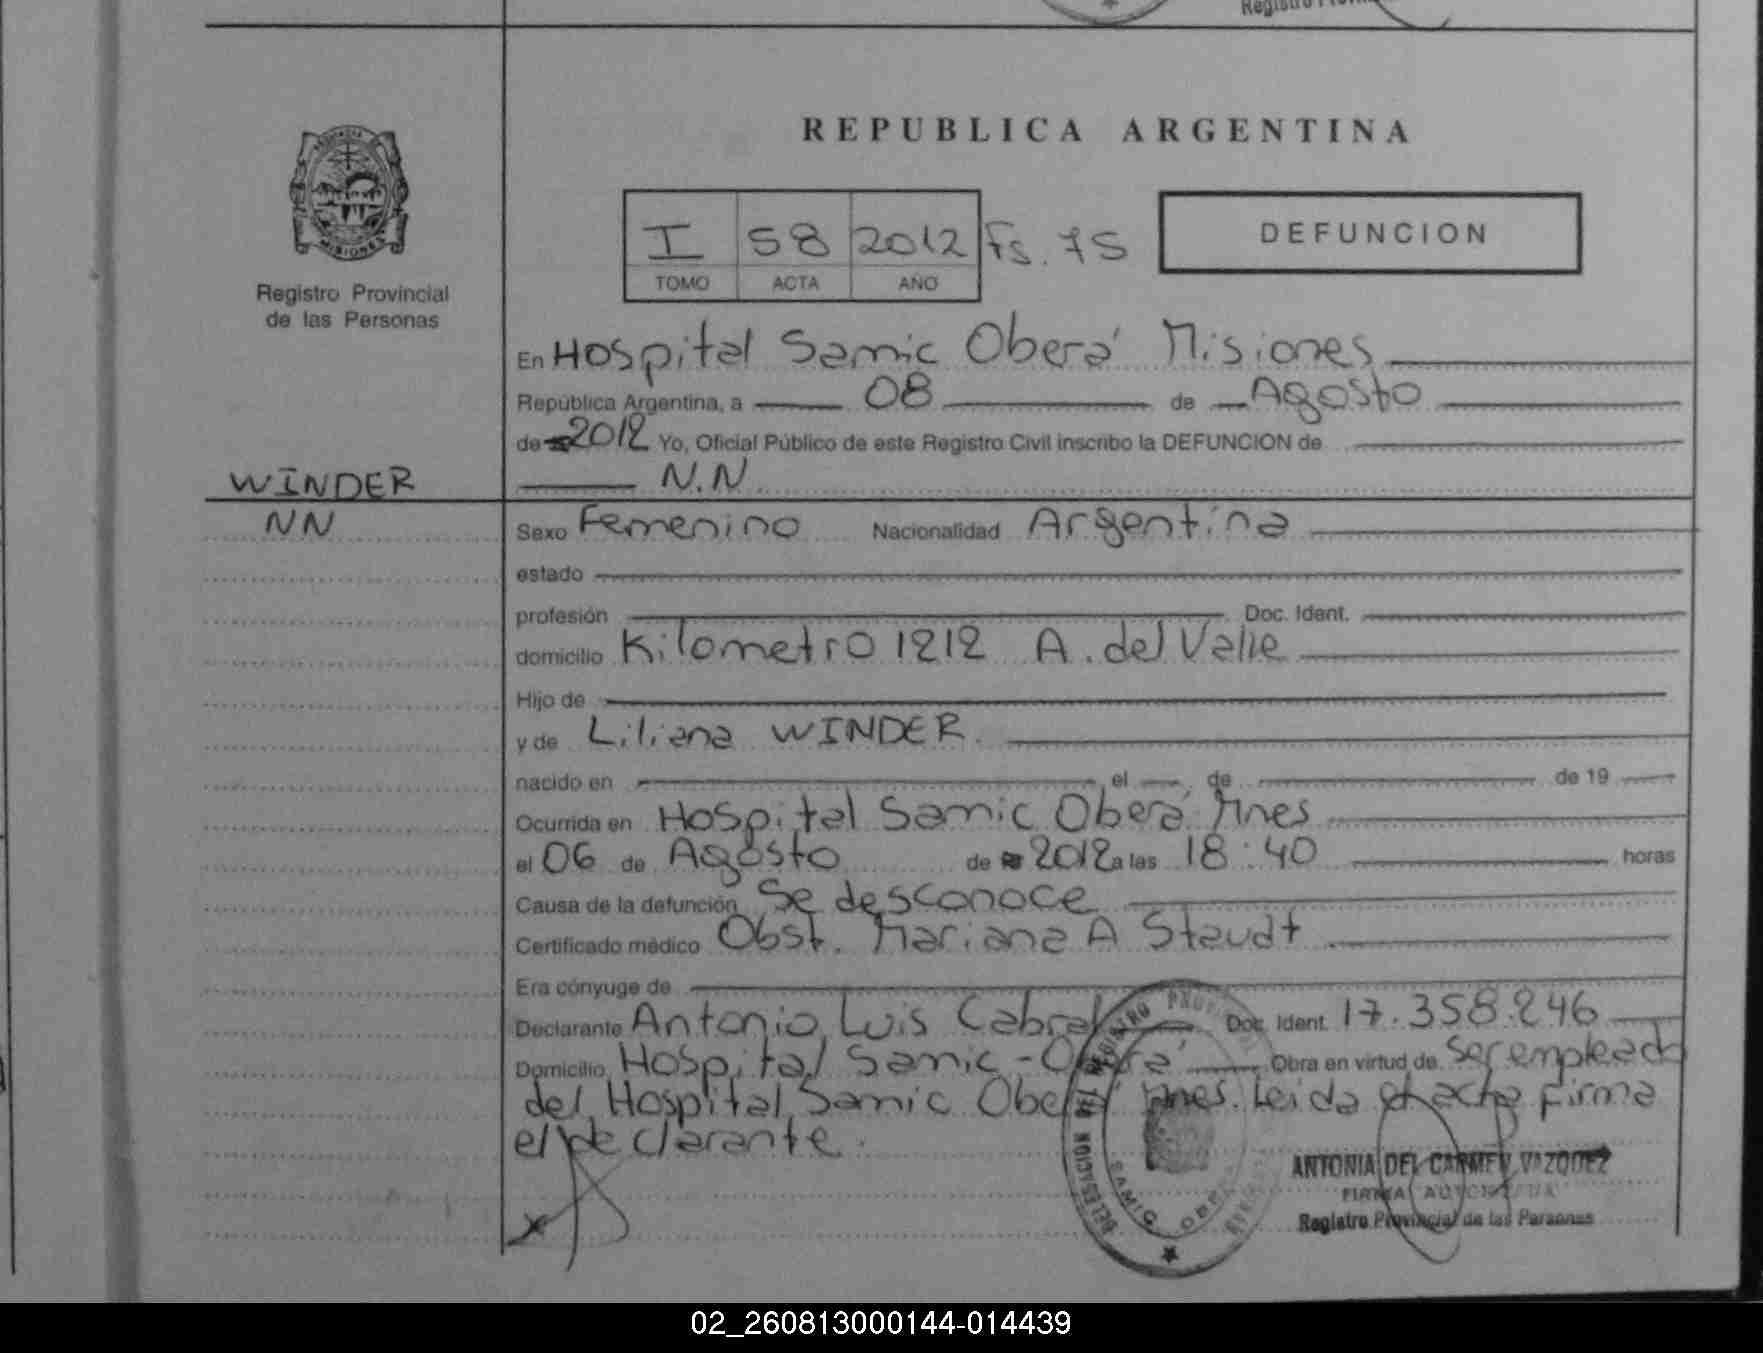 REPUBLICA ARGENTINA
I 58 2012 Fs. 75
TOMO ACTA AÑO
DEFUNCION
MISIONES
Registro Provincial
de las Personas
En Hospital Samic Oberá Misiones
República Argentina, a 08 de Agosto
de 2012 Yo, Oficial Público de este Registro Civil inscribo la DEFUNCION de
N.N
WINDER
NN
Sexo Femenino Nacionalidad Argentina
estado
profesión Doc. Ident.
domicilio Kilometro 1212 A. del Valle
Hijo de
y de Liliana WINDER
nacido en el de de 19
Ocurrida en Hospital Samic Oberá Mnes
el 06 de Agosto de 2012 a las 18:40 horas
Causa de la defunción Se desconoce
Certificado médico Obst. Mariana A Staudt
Era cónyuge de
Declarante Antonio Luis Cabral Doc. Ident. 17.358.246
Domicilio Hospital Samic - Oberá Obra en virtud de ser empleado
del Hospital Samic Oberá Mnes. Leida el acta firma
el declarante.
DELEGACION
SAMIC
ANTONIA DEL CARMEN VAZQUEZ
FIRMA AUTORIZADA
Registro Provincial de las Personas
02_260813000144-014439